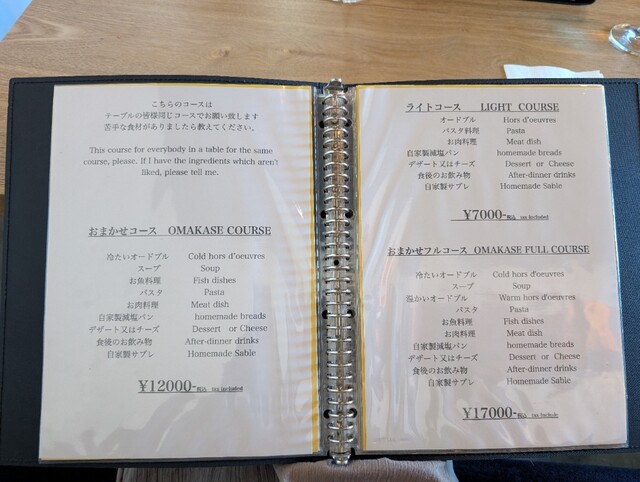 こちらのコースは
テーブルの皆様同じコースでお願い致します
苦手な食材がありましたら教えてください。
This course for everybody in a table for the same
course, please. If I have the ingredients which aren't
liked, please tell me.
おまかせコース OMAKASE COURSE
冷たいオードブル Cold hors d'oeuvres
スープ Soup
お魚料理 Fish dishes
パスタ Pasta
お肉料理 Meat dish
自家製減塩パン homemade breads
デザート又はチーズ Dessert or Cheese
食後のお飲み物 After-dinner drinks
自家製サブレ Homemade Sable
¥12000-税込 tax included
ライトコース LIGHT COURSE
オードブル Hors d'oeuvres
パスタ料理 Pasta
お肉料理 Meat dish
自家製減塩パン homemade breads
デザート又はチーズ Dessert or Cheese
食後のお飲み物 After-dinner drinks
自家製サブレ Homemade Sable
¥7000-税込 tax included
おまかせフルコース OMAKASE FULL COURSE
冷たいオードブル Cold hors d'oeuvres
スープ Soup
温かいオードブル Warm hors d'oeuvres
パスタ Pasta
お魚料理 Fish dishes
お肉料理 Meat dish
自家製減塩パン homemade breads
デザート又はチーズ Dessert or Cheese
食後のお飲み物 After-dinner drinks
自家製サブレ Homemade Sable
¥17000-税込 tax include